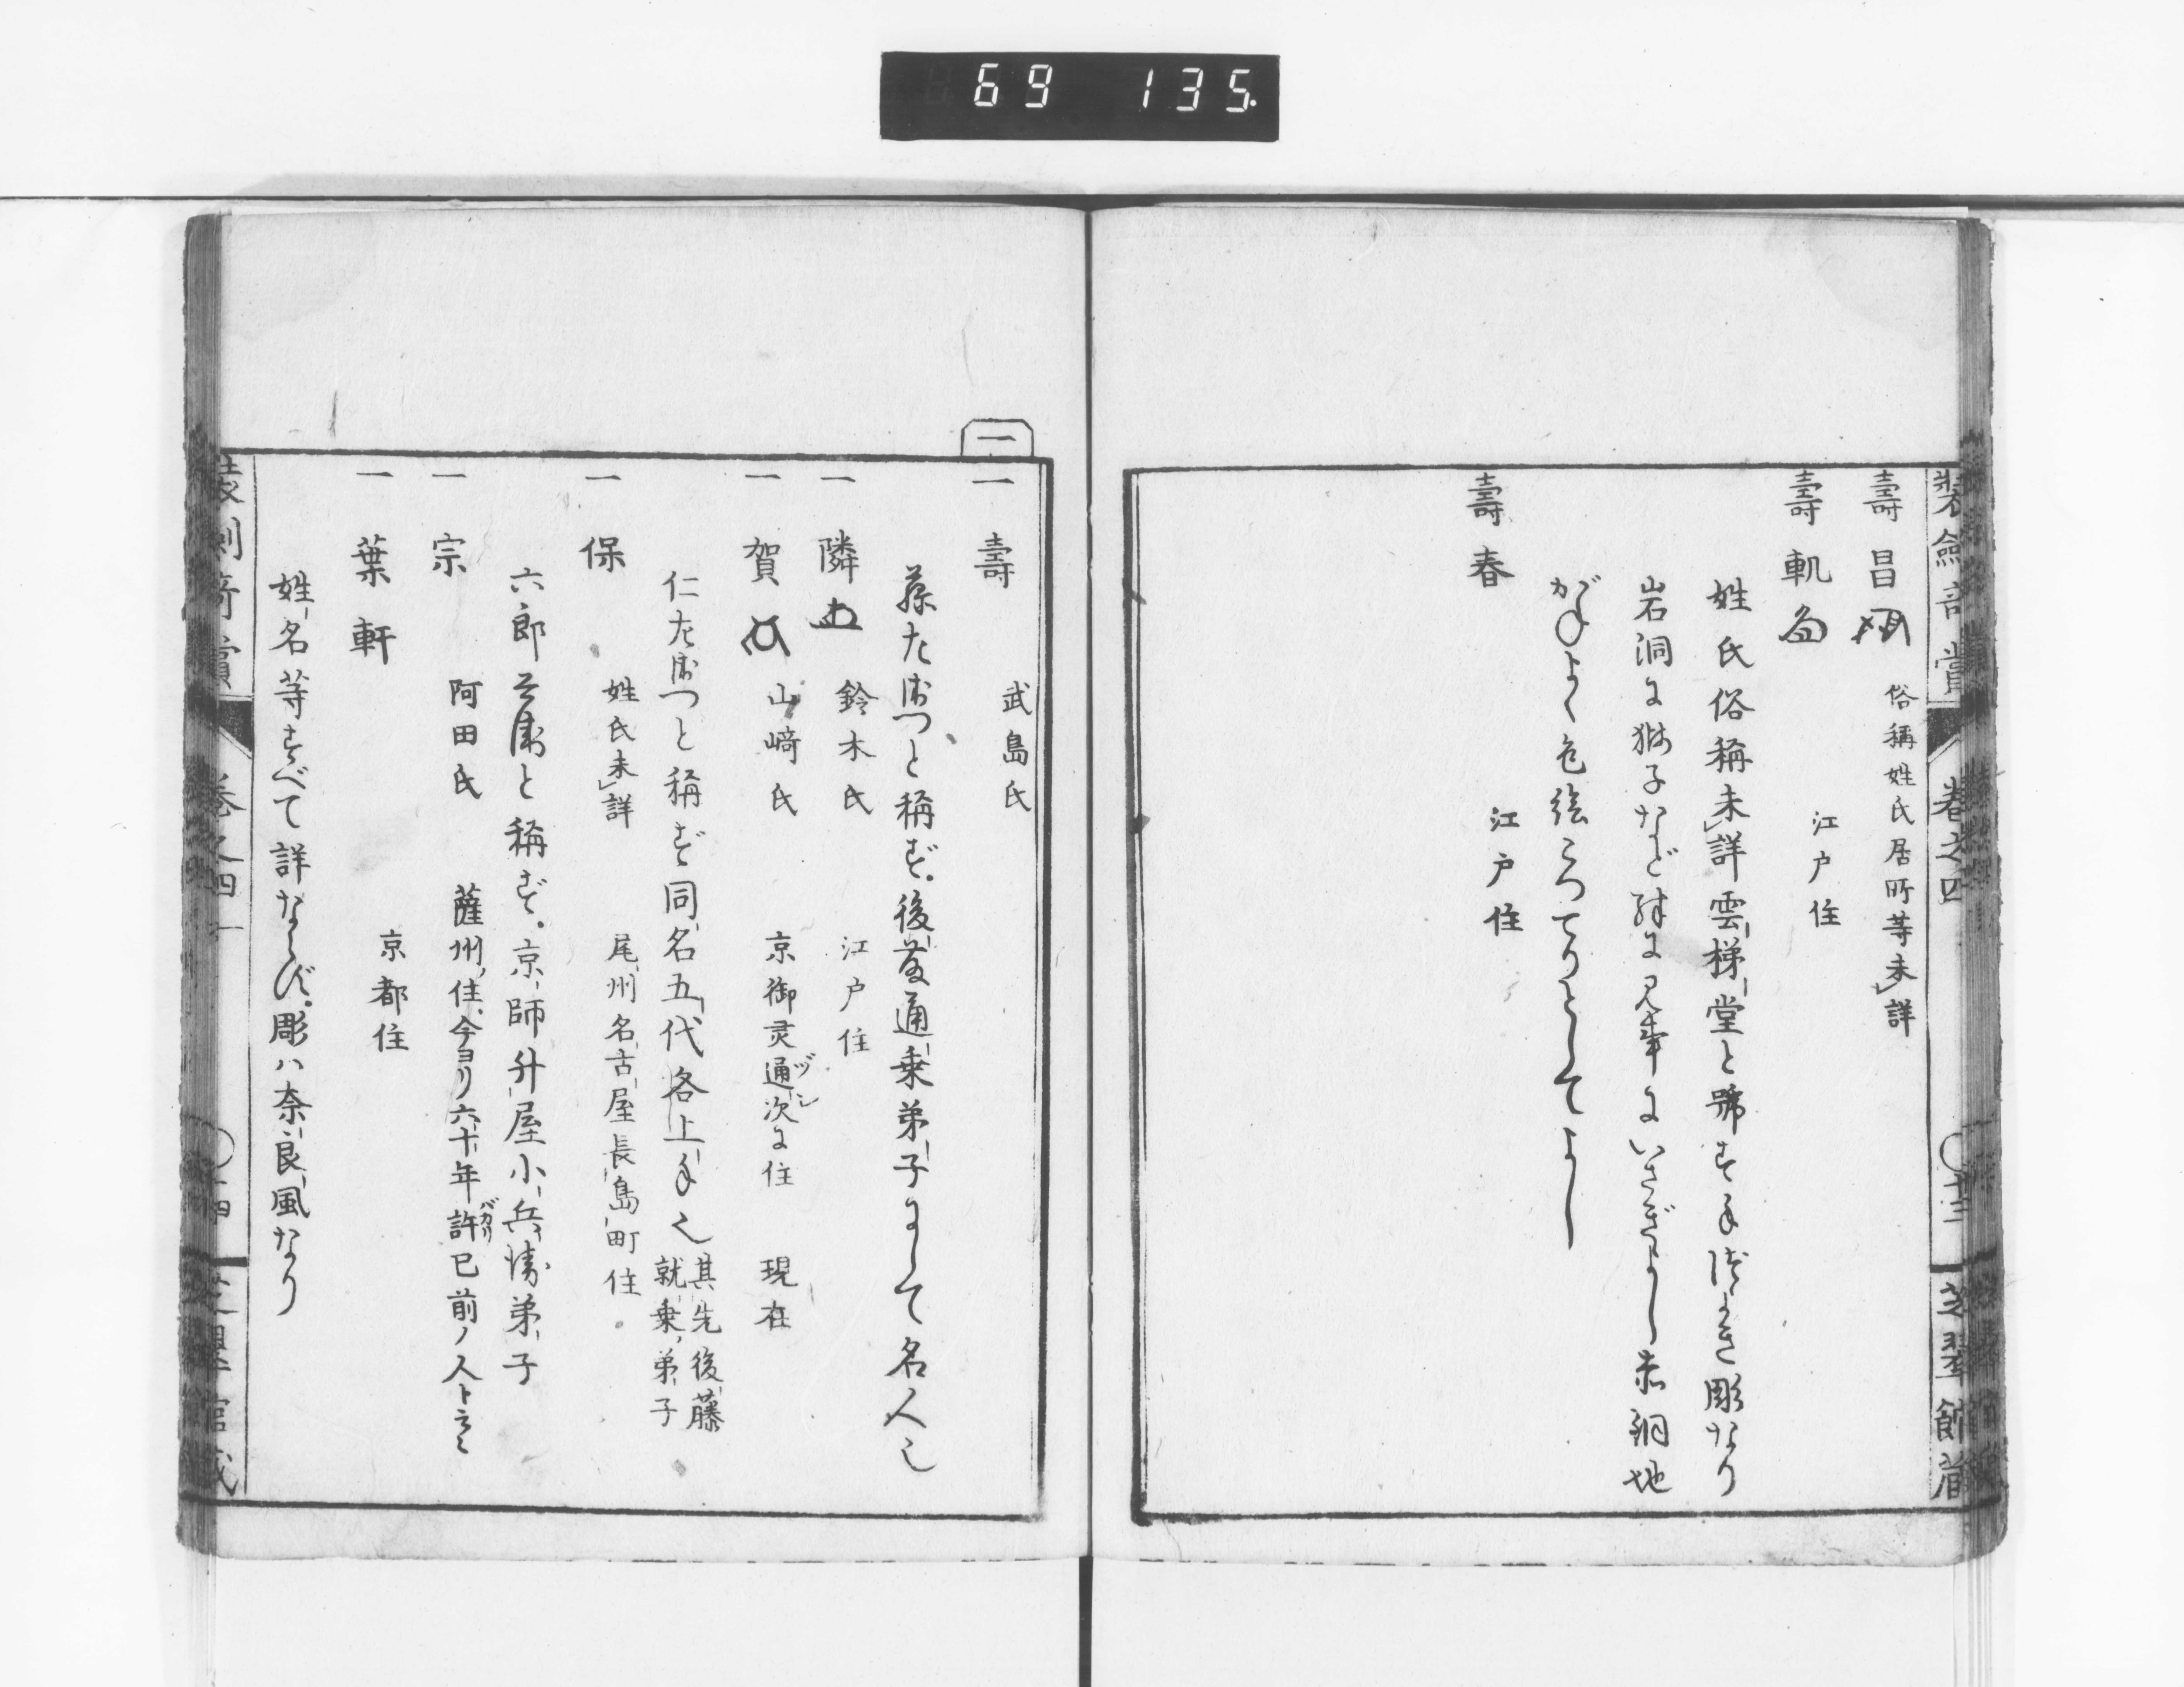 69 135.
壽昌 俗稱姓氏居所等未詳
壽軏 江戸住
姓氏俗稱未詳雲梯堂と號す手際よき彫なり
岩洞に獅子など殊に見事にいさぎよし赤銅地
がねよく色絵こつてりとしてよし
壽春 江戸住
装劔奇賞 巻之四 十三 芝翠館蔵
一
一壽 武島氏
藤左衛つと稱ず。後藤通乗弟子にして名人也
一隣 鈴木氏 江戸住
一賀 山﨑氏 京御灵通次に住 現在
ヅシ
仁左衛つと稱ず同名五代各上手也 其先後藤
就乗弟子
一保 姓氏未詳 尾州名古屋長島町住
六郎兵衛と稱ず。京師升屋小兵衛弟子
一宗 阿田氏 薩州住今ヨリ六十年許已前ノ人ト云々
バカリ
一葉軒 京都住
姓名等すべて詳ならず。彫ハ奈良風なり
巻之四